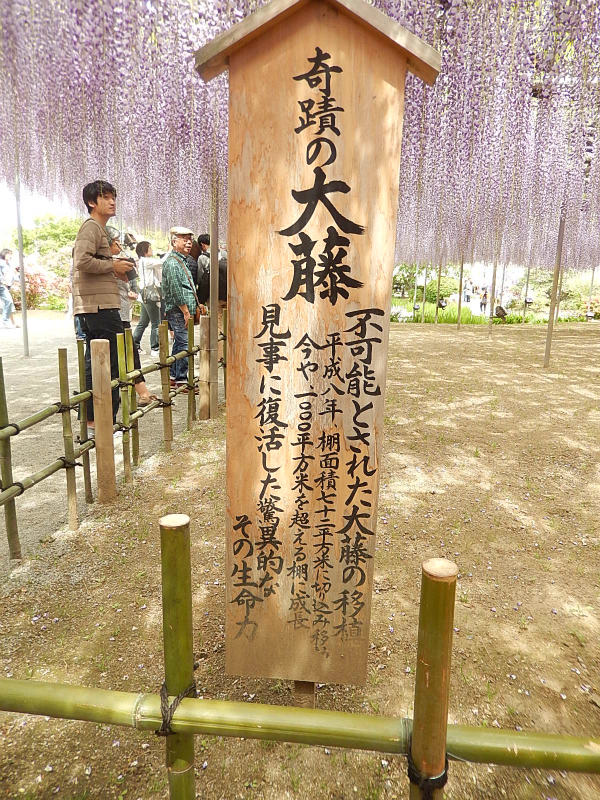 奇蹟の大藤
不可能とされた大藤の移植
平成八年 棚面積七十二平方米に切り込み移
今や一〇〇〇平方米を超える棚に成長
見事に復活した驚異的な
その生命力